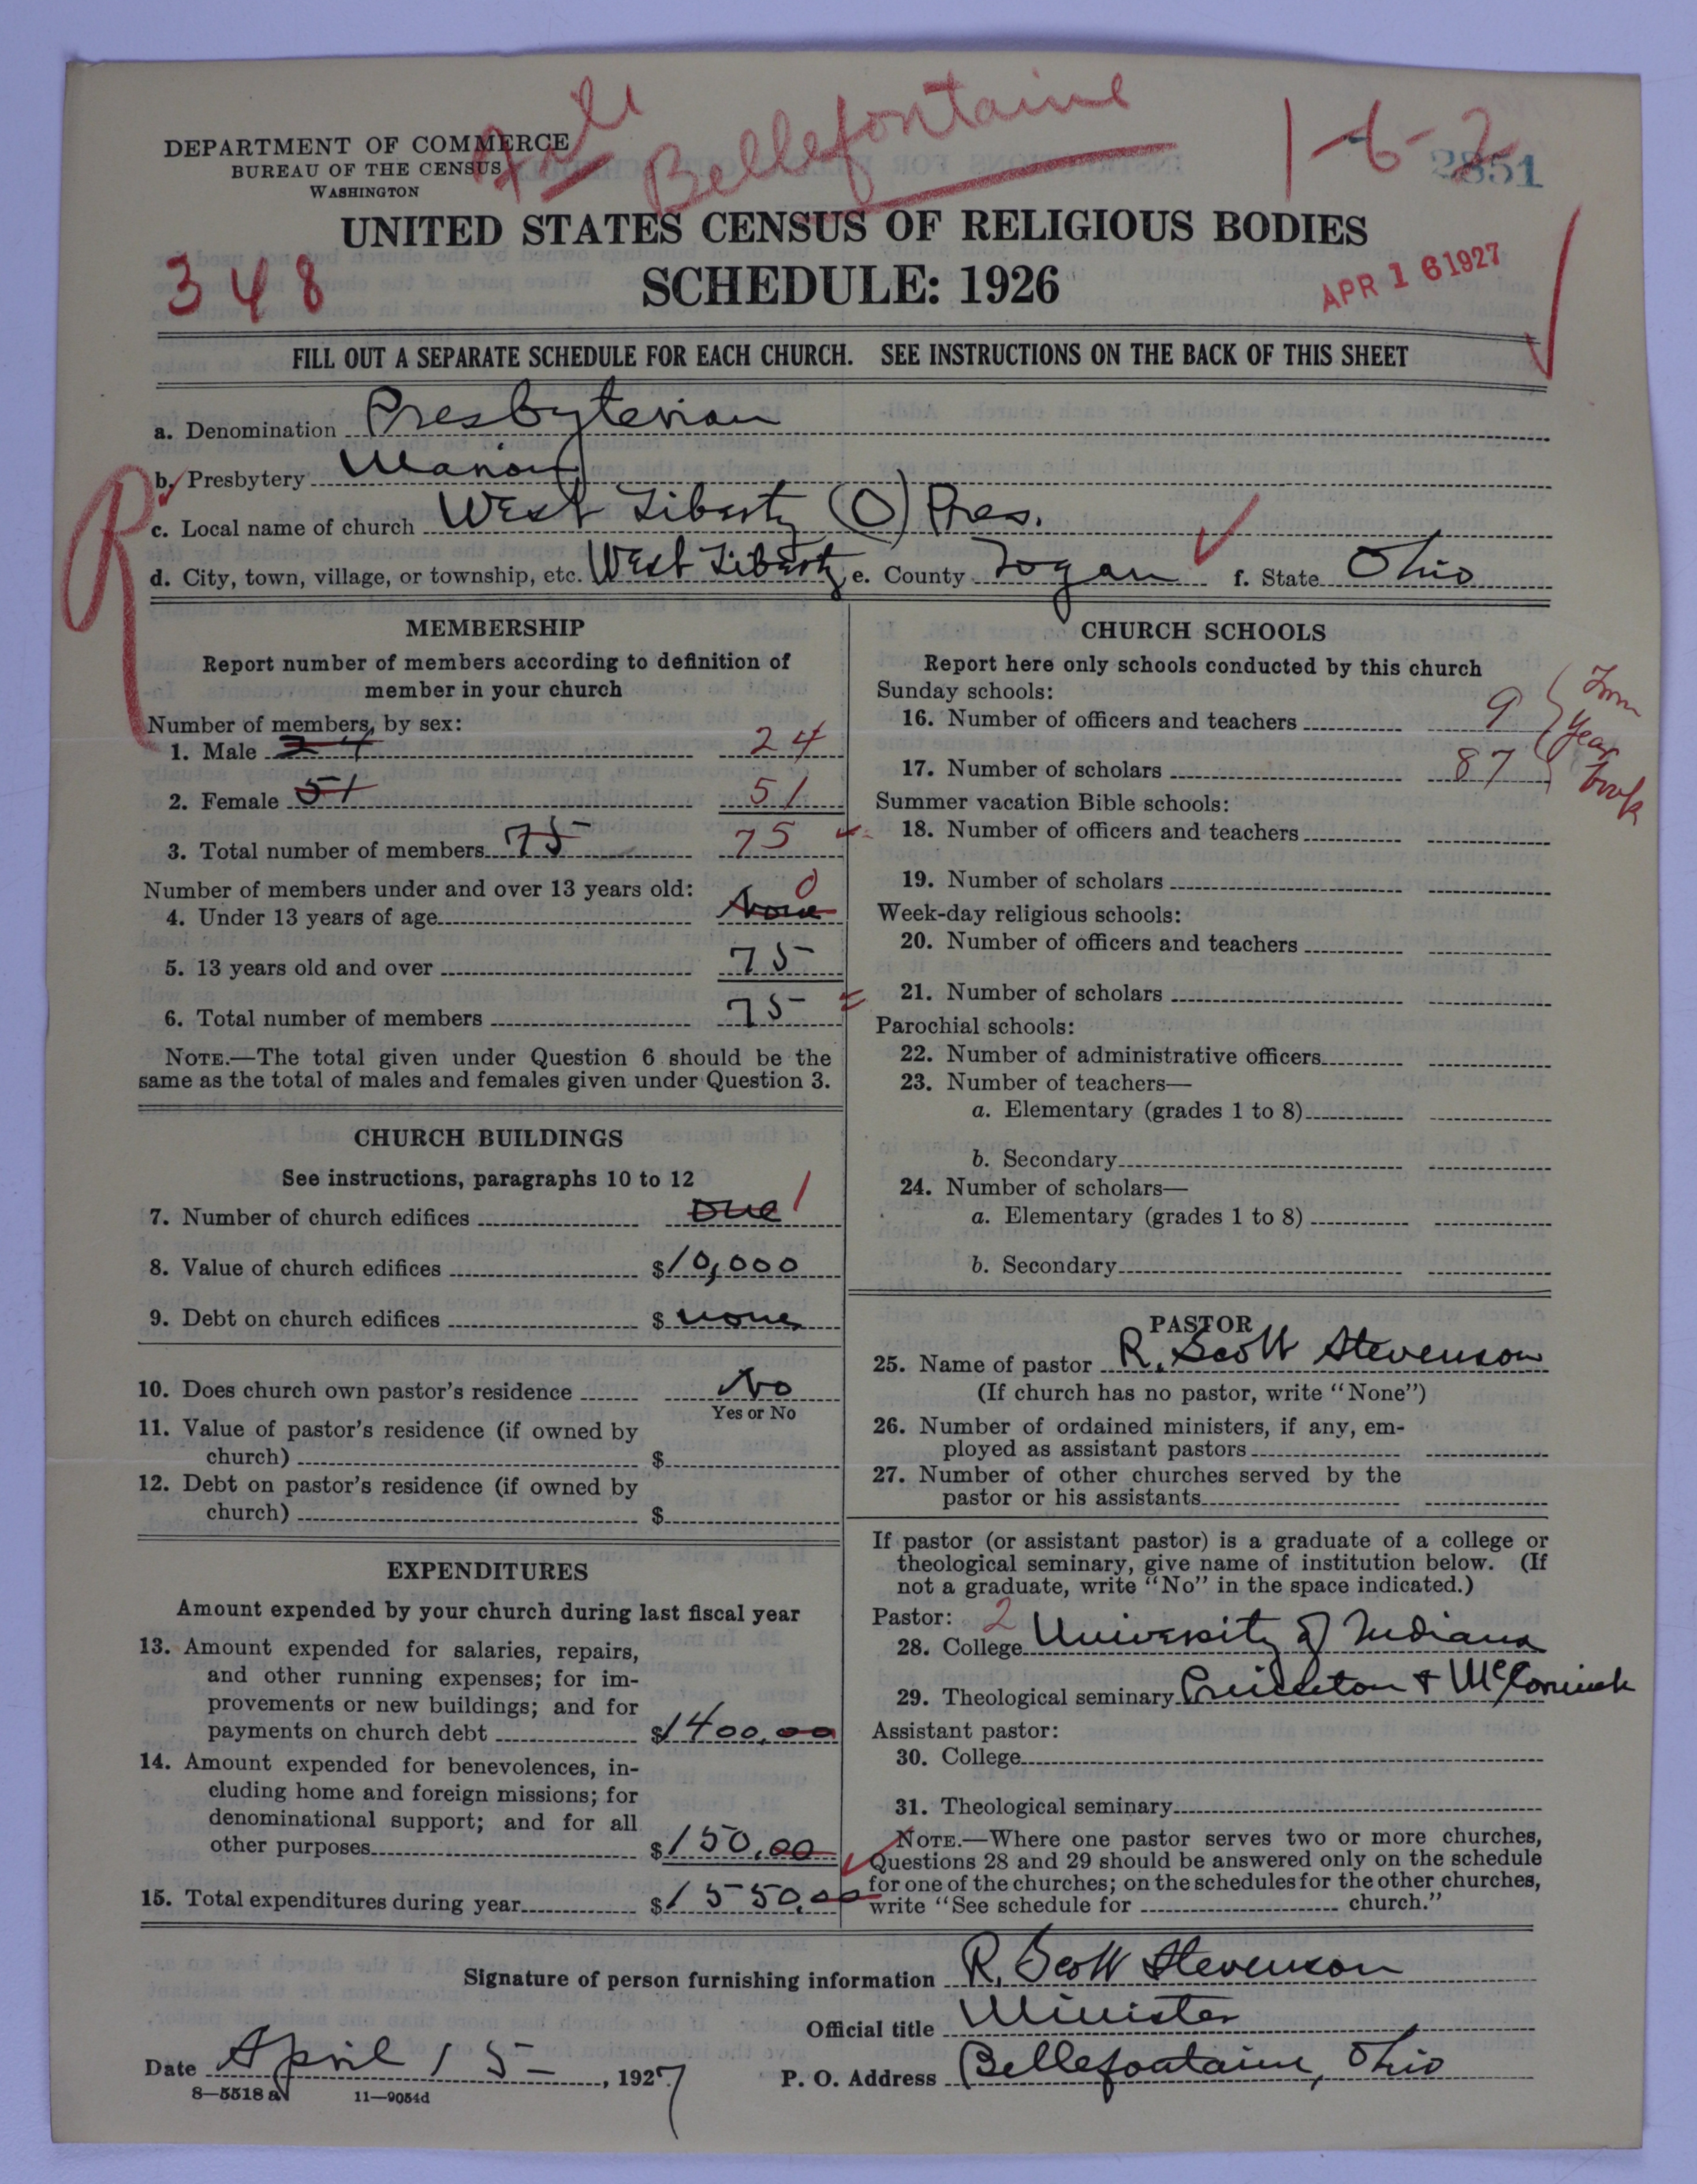 Bellefontaine
1-6-2
DEPARTMENT OF COMMERCE
BUREAU OF THE CENSUS
WASHINGTON
2851
UNITED STATES CENSUS OF RELIGIOUS BODIES
348
SCHEDULE: 1926
APR 16 1927
FILL OUT A SEPARATE SCHEDULE FOR EACH CHURCH. SEE INSTRUCTIONS ON THE BACK OF THIS SHEET
a. Denomination Presbyterian
R
b. Presbytery Marion
c. Local name of church West Liberty (O) Pres.
d. City, town, village, or township, etc. West Liberty e. County Logan f. State Ohio
MEMBERSHIP
Report number of members according to definition of
member in your church
Number of members, by sex:
1. Male 24 24
2. Female 51 51
3. Total number of members 75 75
Number of members under and over 13 years old:
4. Under 13 years of age None 0
5. 13 years old and over 75
6. Total number of members 75
NOTE.—The total given under Question 6 should be the
same as the total of males and females given under Question 3.
CHURCH BUILDINGS
See instructions, paragraphs 10 to 12
7. Number of church edifices One 1
8. Value of church edifices $10,000
9. Debt on church edifices $ none
10. Does church own pastor's residence No
Yes or No
11. Value of pastor's residence (if owned by
church) $
12. Debt on pastor's residence (if owned by
church) $
EXPENDITURES
Amount expended by your church during last fiscal year
13. Amount expended for salaries, repairs,
and other running expenses; for im-
provements or new buildings; and for
payments on church debt $1400.00
14. Amount expended for benevolences, in-
cluding home and foreign missions; for
denominational support; and for all
other purposes $150.00
15. Total expenditures during year $1550.00
CHURCH SCHOOLS
Report here only schools conducted by this church
Sunday schools:
16. Number of officers and teachers 9
17. Number of scholars 87
From
Year
Book
Summer vacation Bible schools:
18. Number of officers and teachers
19. Number of scholars
Week-day religious schools:
20. Number of officers and teachers
21. Number of scholars
Parochial schools:
22. Number of administrative officers
23. Number of teachers—
a. Elementary (grades 1 to 8)
b. Secondary
24. Number of scholars—
a. Elementary (grades 1 to 8)
b. Secondary
PASTOR
25. Name of pastor R. Scott Stevenson
(If church has no pastor, write "None")
26. Number of ordained ministers, if any, em-
ployed as assistant pastors
27. Number of other churches served by the
pastor or his assistants
If pastor (or assistant pastor) is a graduate of a college or
theological seminary, give name of institution below. (If
not a graduate, write "No" in the space indicated.)
Pastor: 2
28. College University of Indiana
29. Theological seminary Princeton & McCormick
Assistant pastor:
30. College
31. Theological seminary
NOTE.—Where one pastor serves two or more churches,
Questions 28 and 29 should be answered only on the schedule
for one of the churches; on the schedules for the other churches,
write "See schedule for church."
Signature of person furnishing information R. Scott Stevenson
Official title Minister
Date April 15, 1927 P. O. Address Bellefontaine, Ohio
8—5518 a 11—9054d